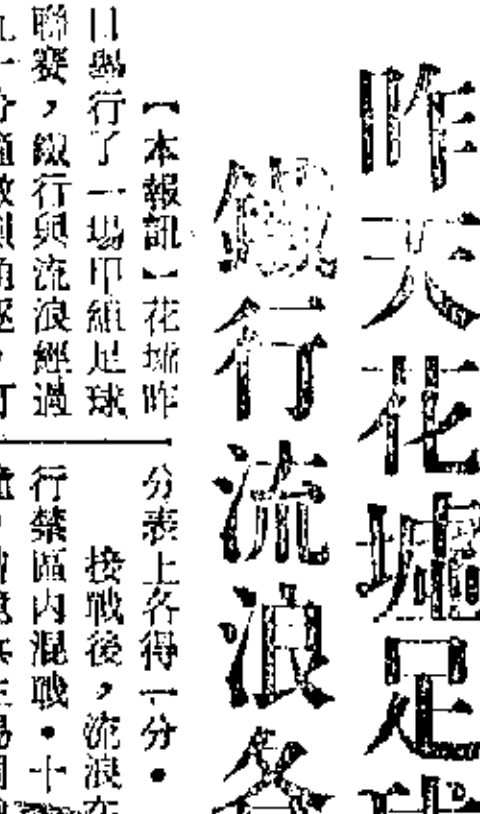 昨天花墟足球
銀行流浪各
【本報訊】花墟昨
日舉行了一場甲組足球
聯賽，銀行與流浪經過
分表上各得一分．
接戰後，流浪在
行禁區內混戰．十